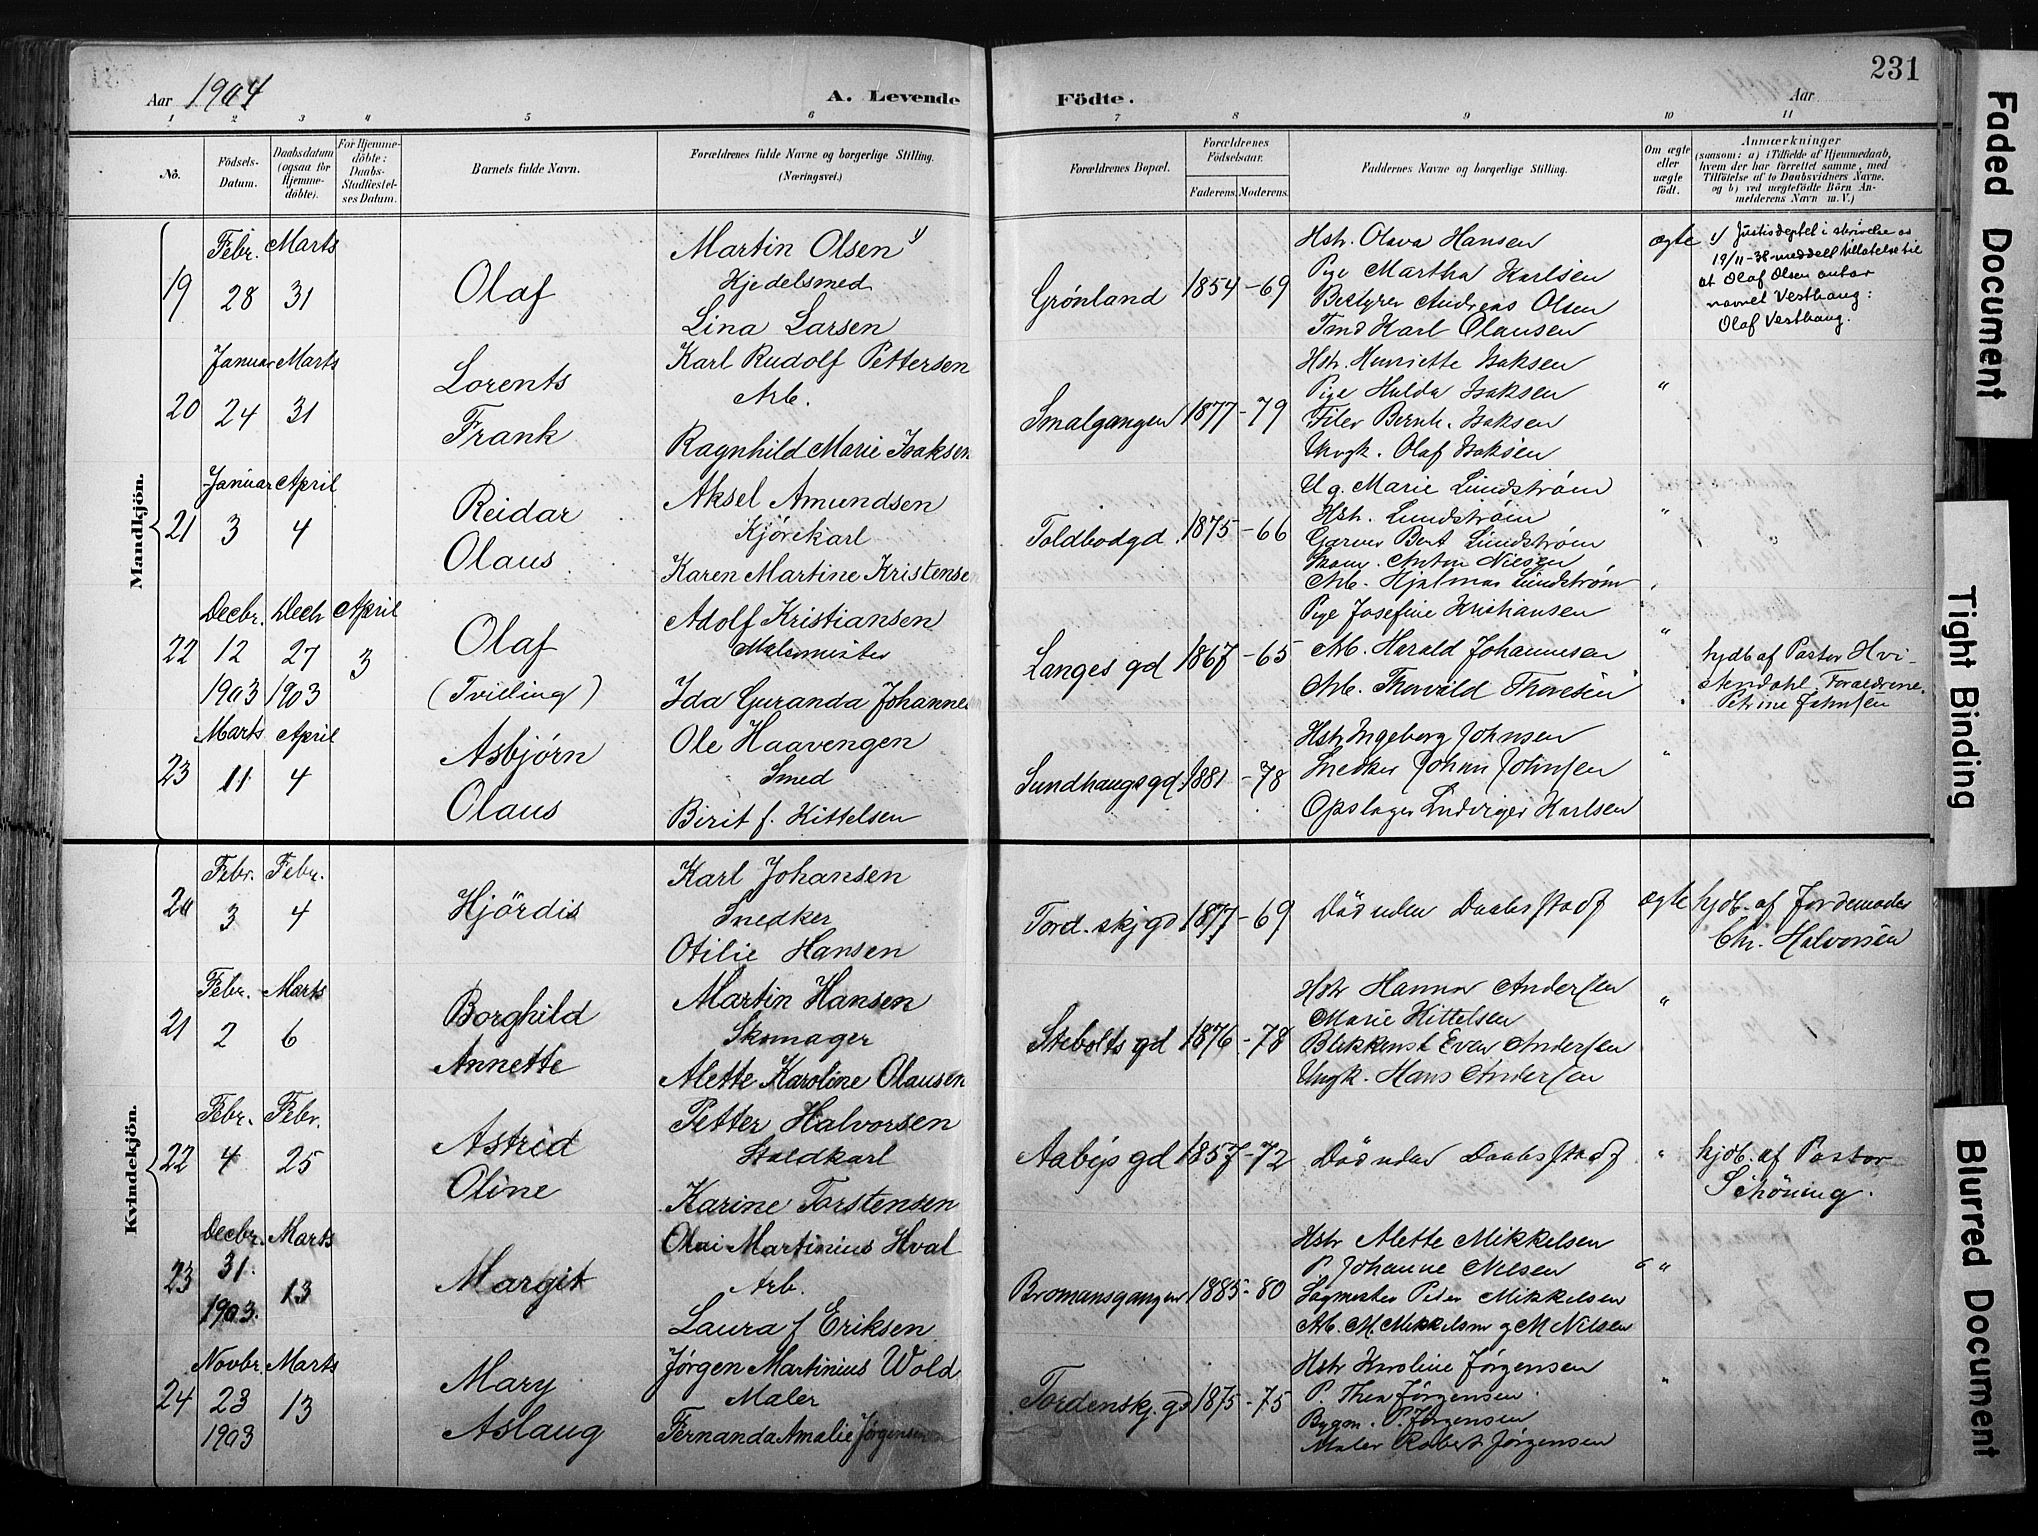 231
Aar 1904 A. Levende Födte. Aar
1 2 3 4 5 6 7 8 9 10 11
No.
Födsels-Datum.
Daabsdatum (ogsaa for Hjemmedöbte).
For Hjemmedöbte: Daabs-Stadfæstelses Datum.
Barnets fulde Navn.
Forældrenes fulde Navne og borgerlige Stilling.
(Næringsvei.)
Forældrenes Bopæl.
Forældrenes Födselsaar.
Faderens. Moderens.
Faddernes Navne og borgerlige Stilling.
Om ægte eller uægte födt.
Anmærkninger
(saasom: a) i Tilfælde af Hjemmedaab,
hvem der har forrettet samme, med
Tilföielse af to Daabsvidners Navne,
og b) ved uægtefödte Börn Anmelderens Navn m. V.)
Mandkjön.
19 Febr. 28 Marts 31
Olaf
Martin Olsen 1/
Kjedelsmed
Lina Larsen
Grønland 1854 -69
Hstr. Olava Hansen
Pige Martha Karlsen
Bestyrer Andreas Olsen
Tmd Karl Olausen
ægte
1/ Justisdeptet i skrivelse av
19/11-38 meddelt tillatelse til
at Olaf Olsen antar
navnet Vesthaug:
Olaf Vesthaug.
20 Januar 24 Marts 31
Lorents
Frank
Karl Rudolf Pettersen
Arb.
Ragnhild Marie Isaksen
Smalgangen 1877 -79
Hstr. Henriette Isaksen
Pige Hulda Isaksen
Filer Bernh. Isaksen
Ungk. Olaf Isaksen
"
21 Januar 3 April 4
Reidar
Olaus
Aksel Amundsen
Kjørekarl
Karen Martine Kristense
Toldbodgd. 1875 -66
Ug. Marie Lundstrøm
Hstr. Lundstrøm
Garver Bert Lundstrøm
Skom. Anton Nilsen
Arb. Hjalmar Lundstrøm
"
22 Decbr. 12 1903 Decb 27 1903 April 3
Olaf
(Tvilling)
Adolf Kristiansen
Malermester
Ida Guranda Johanne
Langes gd 1867 -65
Pige Josefine Kristiansen
Arb. Harald Johannesen
Arb. Thorvald Thoresen
"
hjdb af Pastor Hvi-
stendahl, Forældrene.
Petrine Johnsen
23 Marts 11 April 4
Asbjørn
Olaus
Ole Haavengen
Smed
Birit f. Kittelsen
Sundhaugsgd 1881 -78
Hstr Ingeborg Johnsen
Snedker Johan Johnsen
Opslager Ludviger Karlsen
"
Kvindekjön.
20 Febr. 3 Febr. 4
Hjördis
Karl Johansen
Snedker
Otilie Hansen
Tord. skj gd 1877 -69
Död uden Daabsstadf
ægte
hjdb. af Jordemoder
Chr. Halvorsen
21 Febr. 2 Marts 6
Borghild
Annette
Martin Hansen
Skomager
Alette Karoline Olausen
Stebolts gd 1876 -78
Hstr Hanna Andersen
Marie Kittelsen
Blikkensl Evar Andersen
Ungk. Hans Andersen
"
22 Febr. 4 Febr. 25
Astrid
Oline
Petter Halvorsen
Staldkarl
Karine Torstensen
Aabys gd 1857 -72
Död uden Daabsstadf
"
hjdb. af Pastor
Schöning.
23 Decbr. 31. 1903. Marts 13
Margit
Olai Martinius Hval
Arb.
Laura f Eriksen
Bromansgangen 1885 -80
Hstr Alette Mikkelsen
P. Johanne Nilsen
Sagmester Peder Mikkelsen
Arb. M. Mikkelsen og M Nilsen
"
24 Novbr. 23 1903 Marts 13
Mary
Aslaug
Jørgen Martinius Wold
Maler
Fernanda Amalie Jørgensen
Tordenskj. gd 1875 -75
Hstr Karoline Jørgensen
P. Thea Jørgensen
Bygm. P. Jørgensen
Maler Robert Jørgensen
"
Faded Document
Tight Binding
Blurred Document